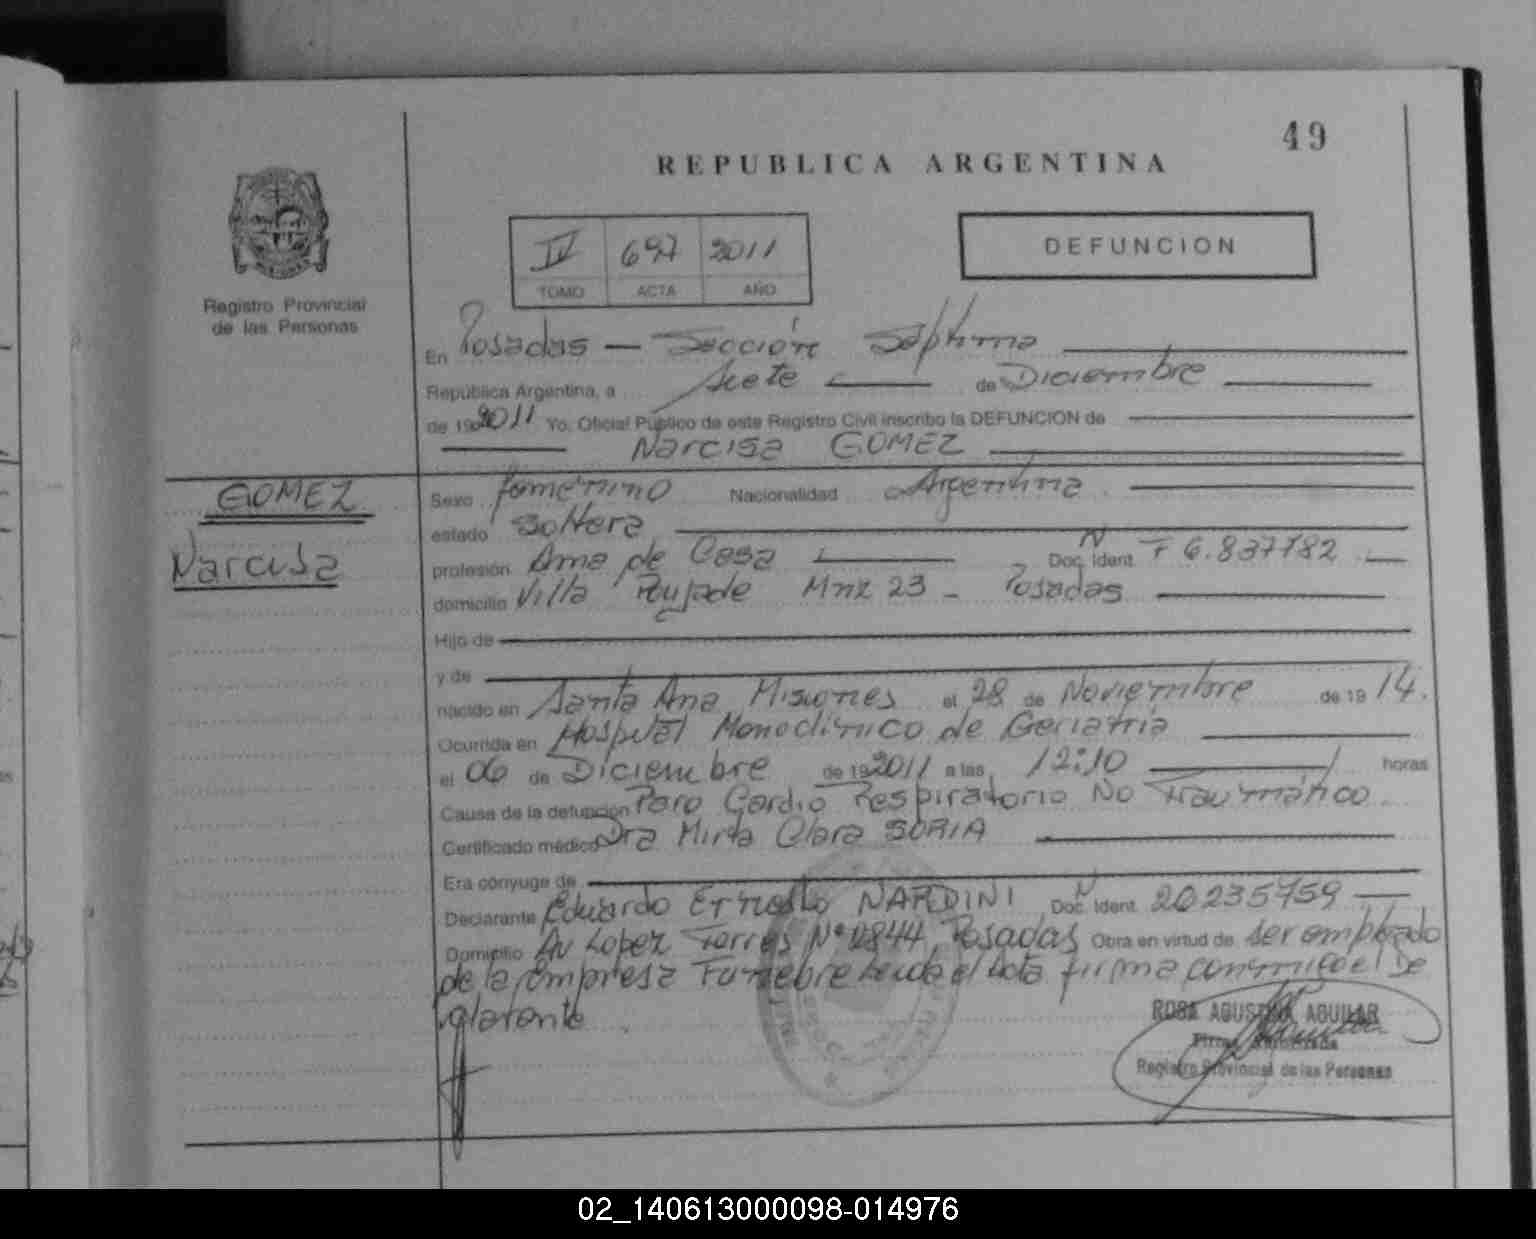 49
REPUBLICA ARGENTINA
IV 697 2011
TOMO ACTA AÑO
DEFUNCION
Registro Provincial
de las Personas
En Posadas — Sección Septima
República Argentina, a Siete de Diciembre
de 19 2011 Yo, Oficial Público de este Registro Civil inscribo la DEFUNCION de
Narcisa GOMEZ
GOMEZ
Narcisa
Sexo femenino Nacionalidad Argentina
estado Soltera
profesión Ama de Casa Doc. Ident. N F 6.837782
domicilio Villa Poujade Mnz 23 - Posadas
Hijo de
y de
nacido en Santa Ana Misiones el 28 de Noviembre de 19 14.
Ocurrida en Hospital Monoclínico de Geriatria
el 06 de Diciembre de 19 2011 a las 12:10 horas
Causa de la defunción Paro Cardio Respiratorio No Traumático
Certificado médico Dra Mirta Clara SORIA
Era cónyuge de
Declarante Eduardo Ernesto NARDINI Doc. Ident. N 20235759
Domicilio Av Lopez Torres Nº 2844 Posadas Obra en virtud de ser empleado
de la Empresa Funebre Leida el Acta firma conmigo el De
clarante
ROSA AGUSTINA AGUILAR
Firma Autorizada
Registro Provincial de las Personas
02_140613000098-014976